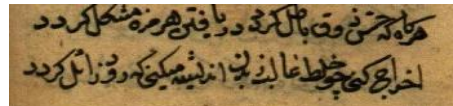 هرکاه که حس ذوق باطل کردد دریافتن هر مزه مشکل کردد
اخراج کنی چو خلط غالب ز بدن اندیشه میکنی که زود زائل کردد